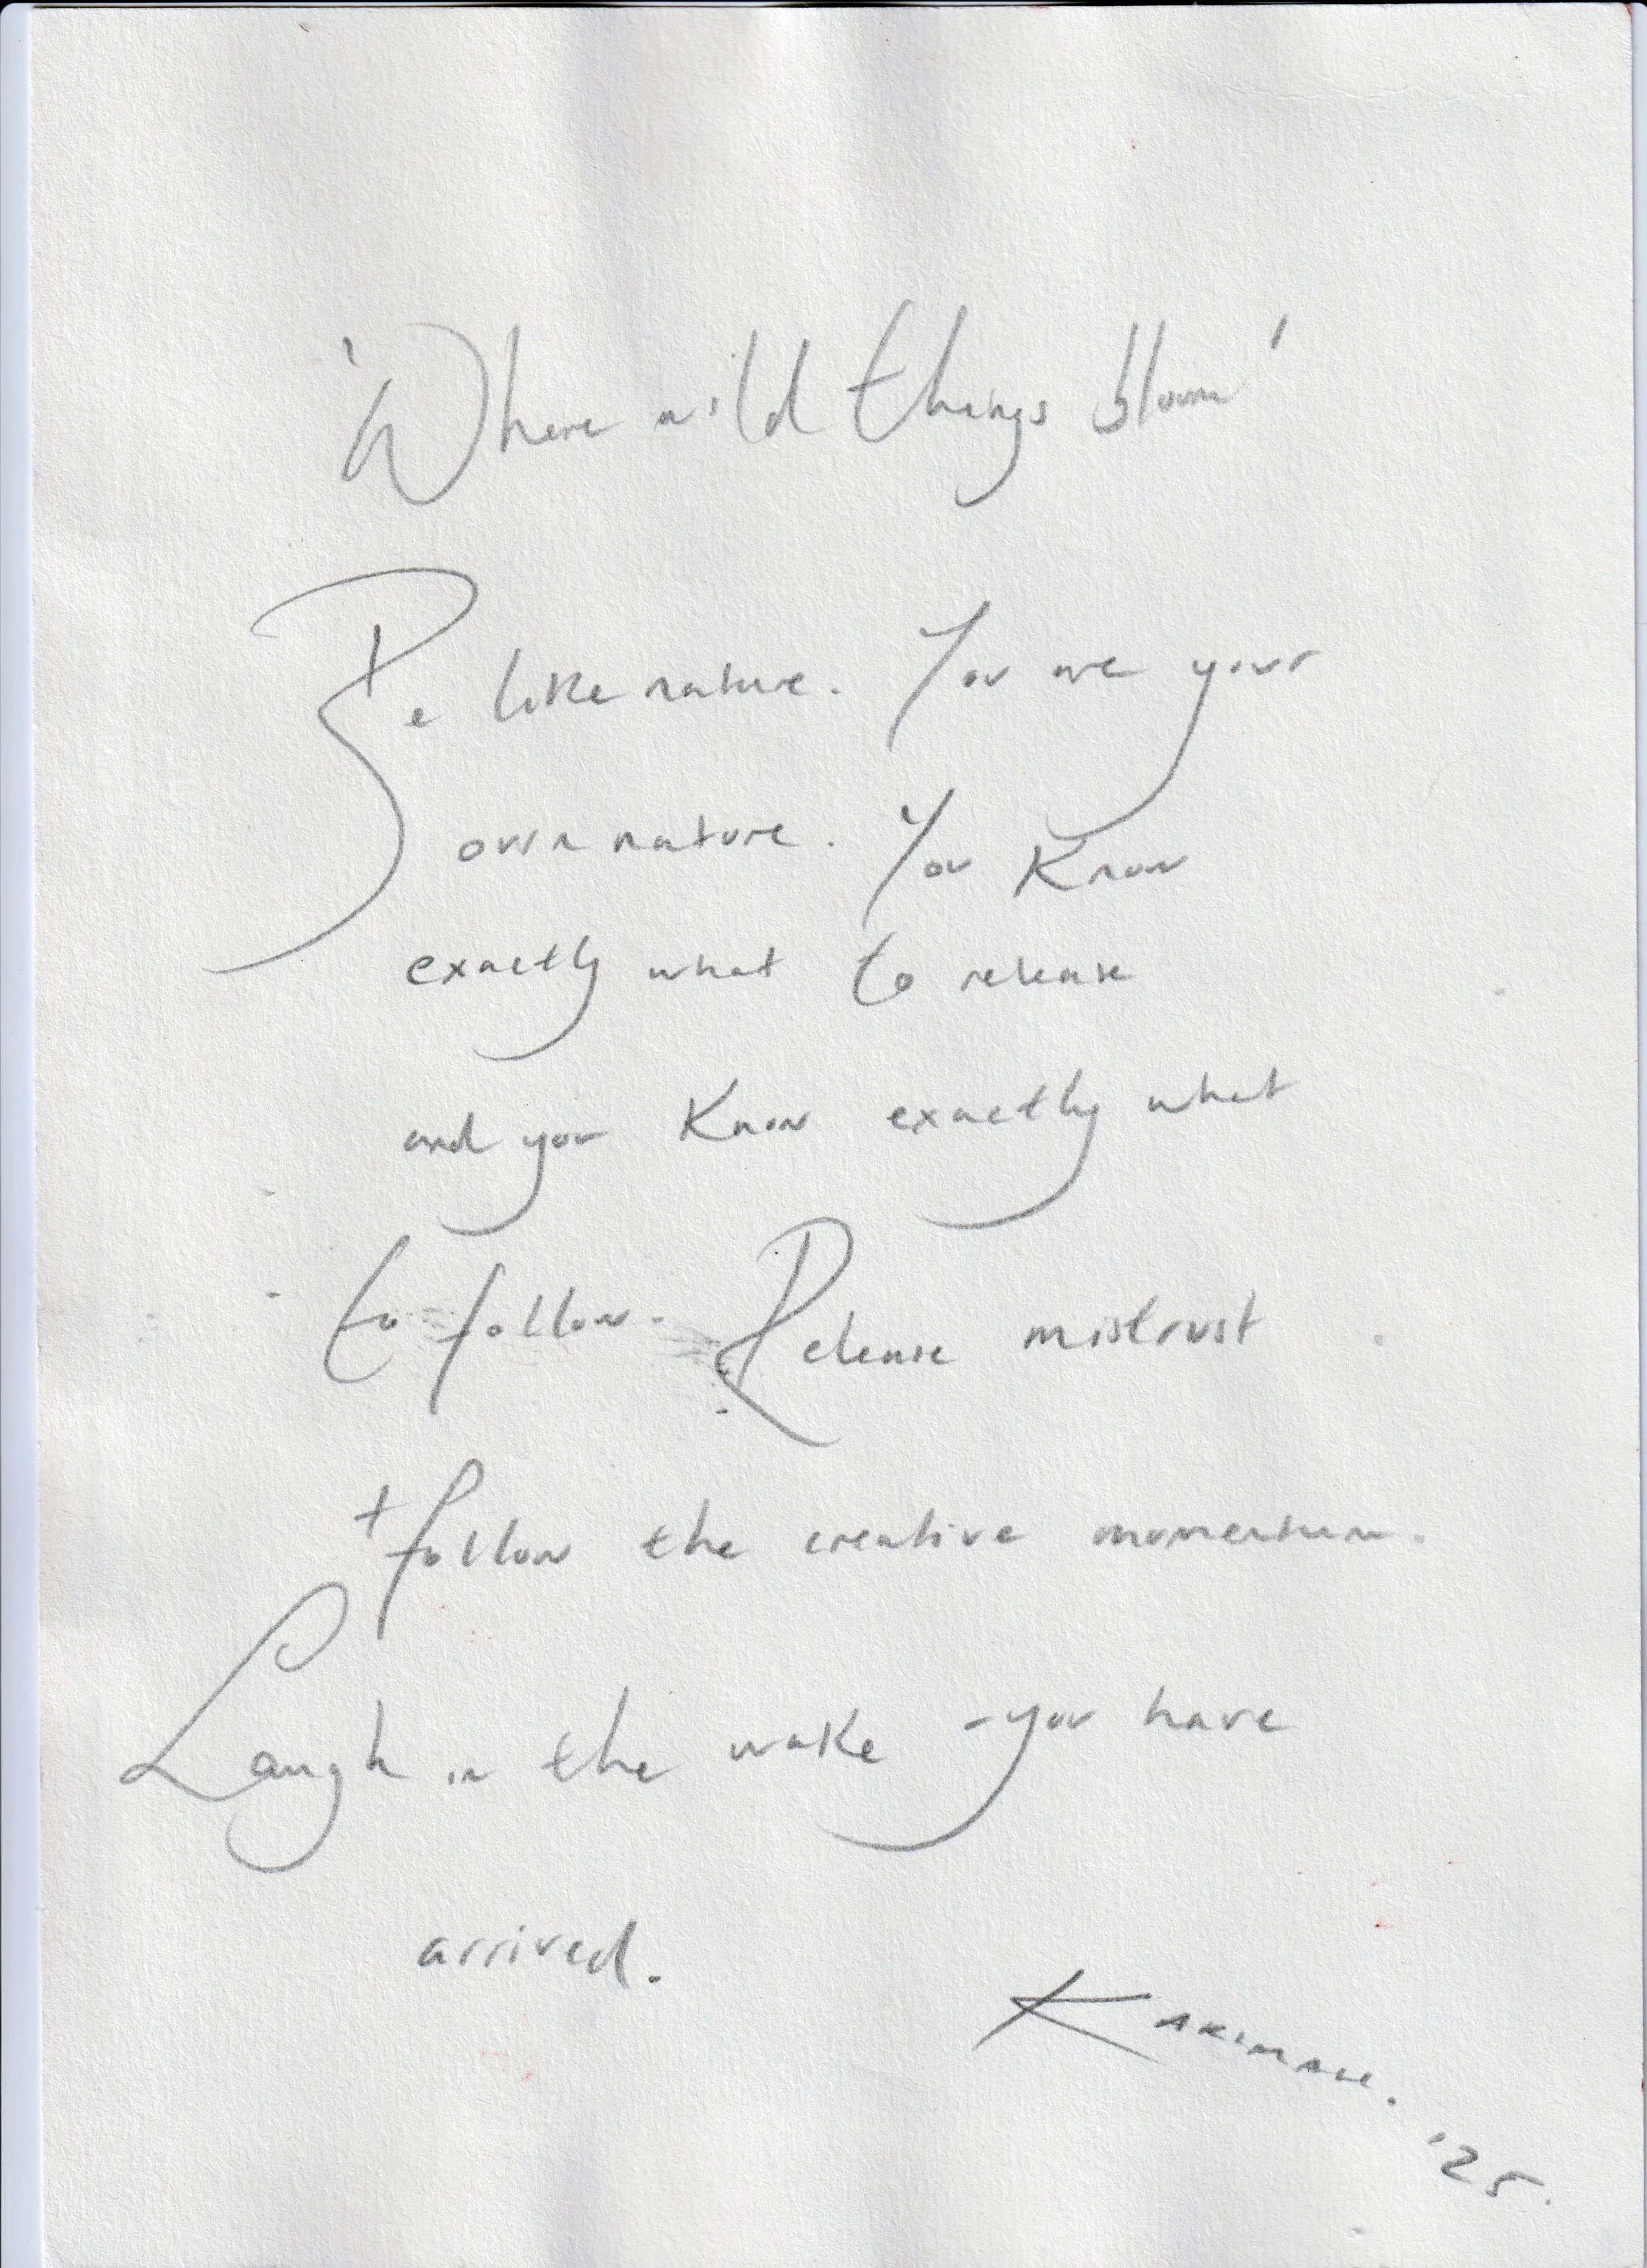 'Where wild things bloom'
Be like nature. You are your
own nature. You know
exactly what to release
and you know exactly what
to follow. Release mistrust
+ follow the creative momentum.
Laugh in the wake - you have
arrived.
'25.